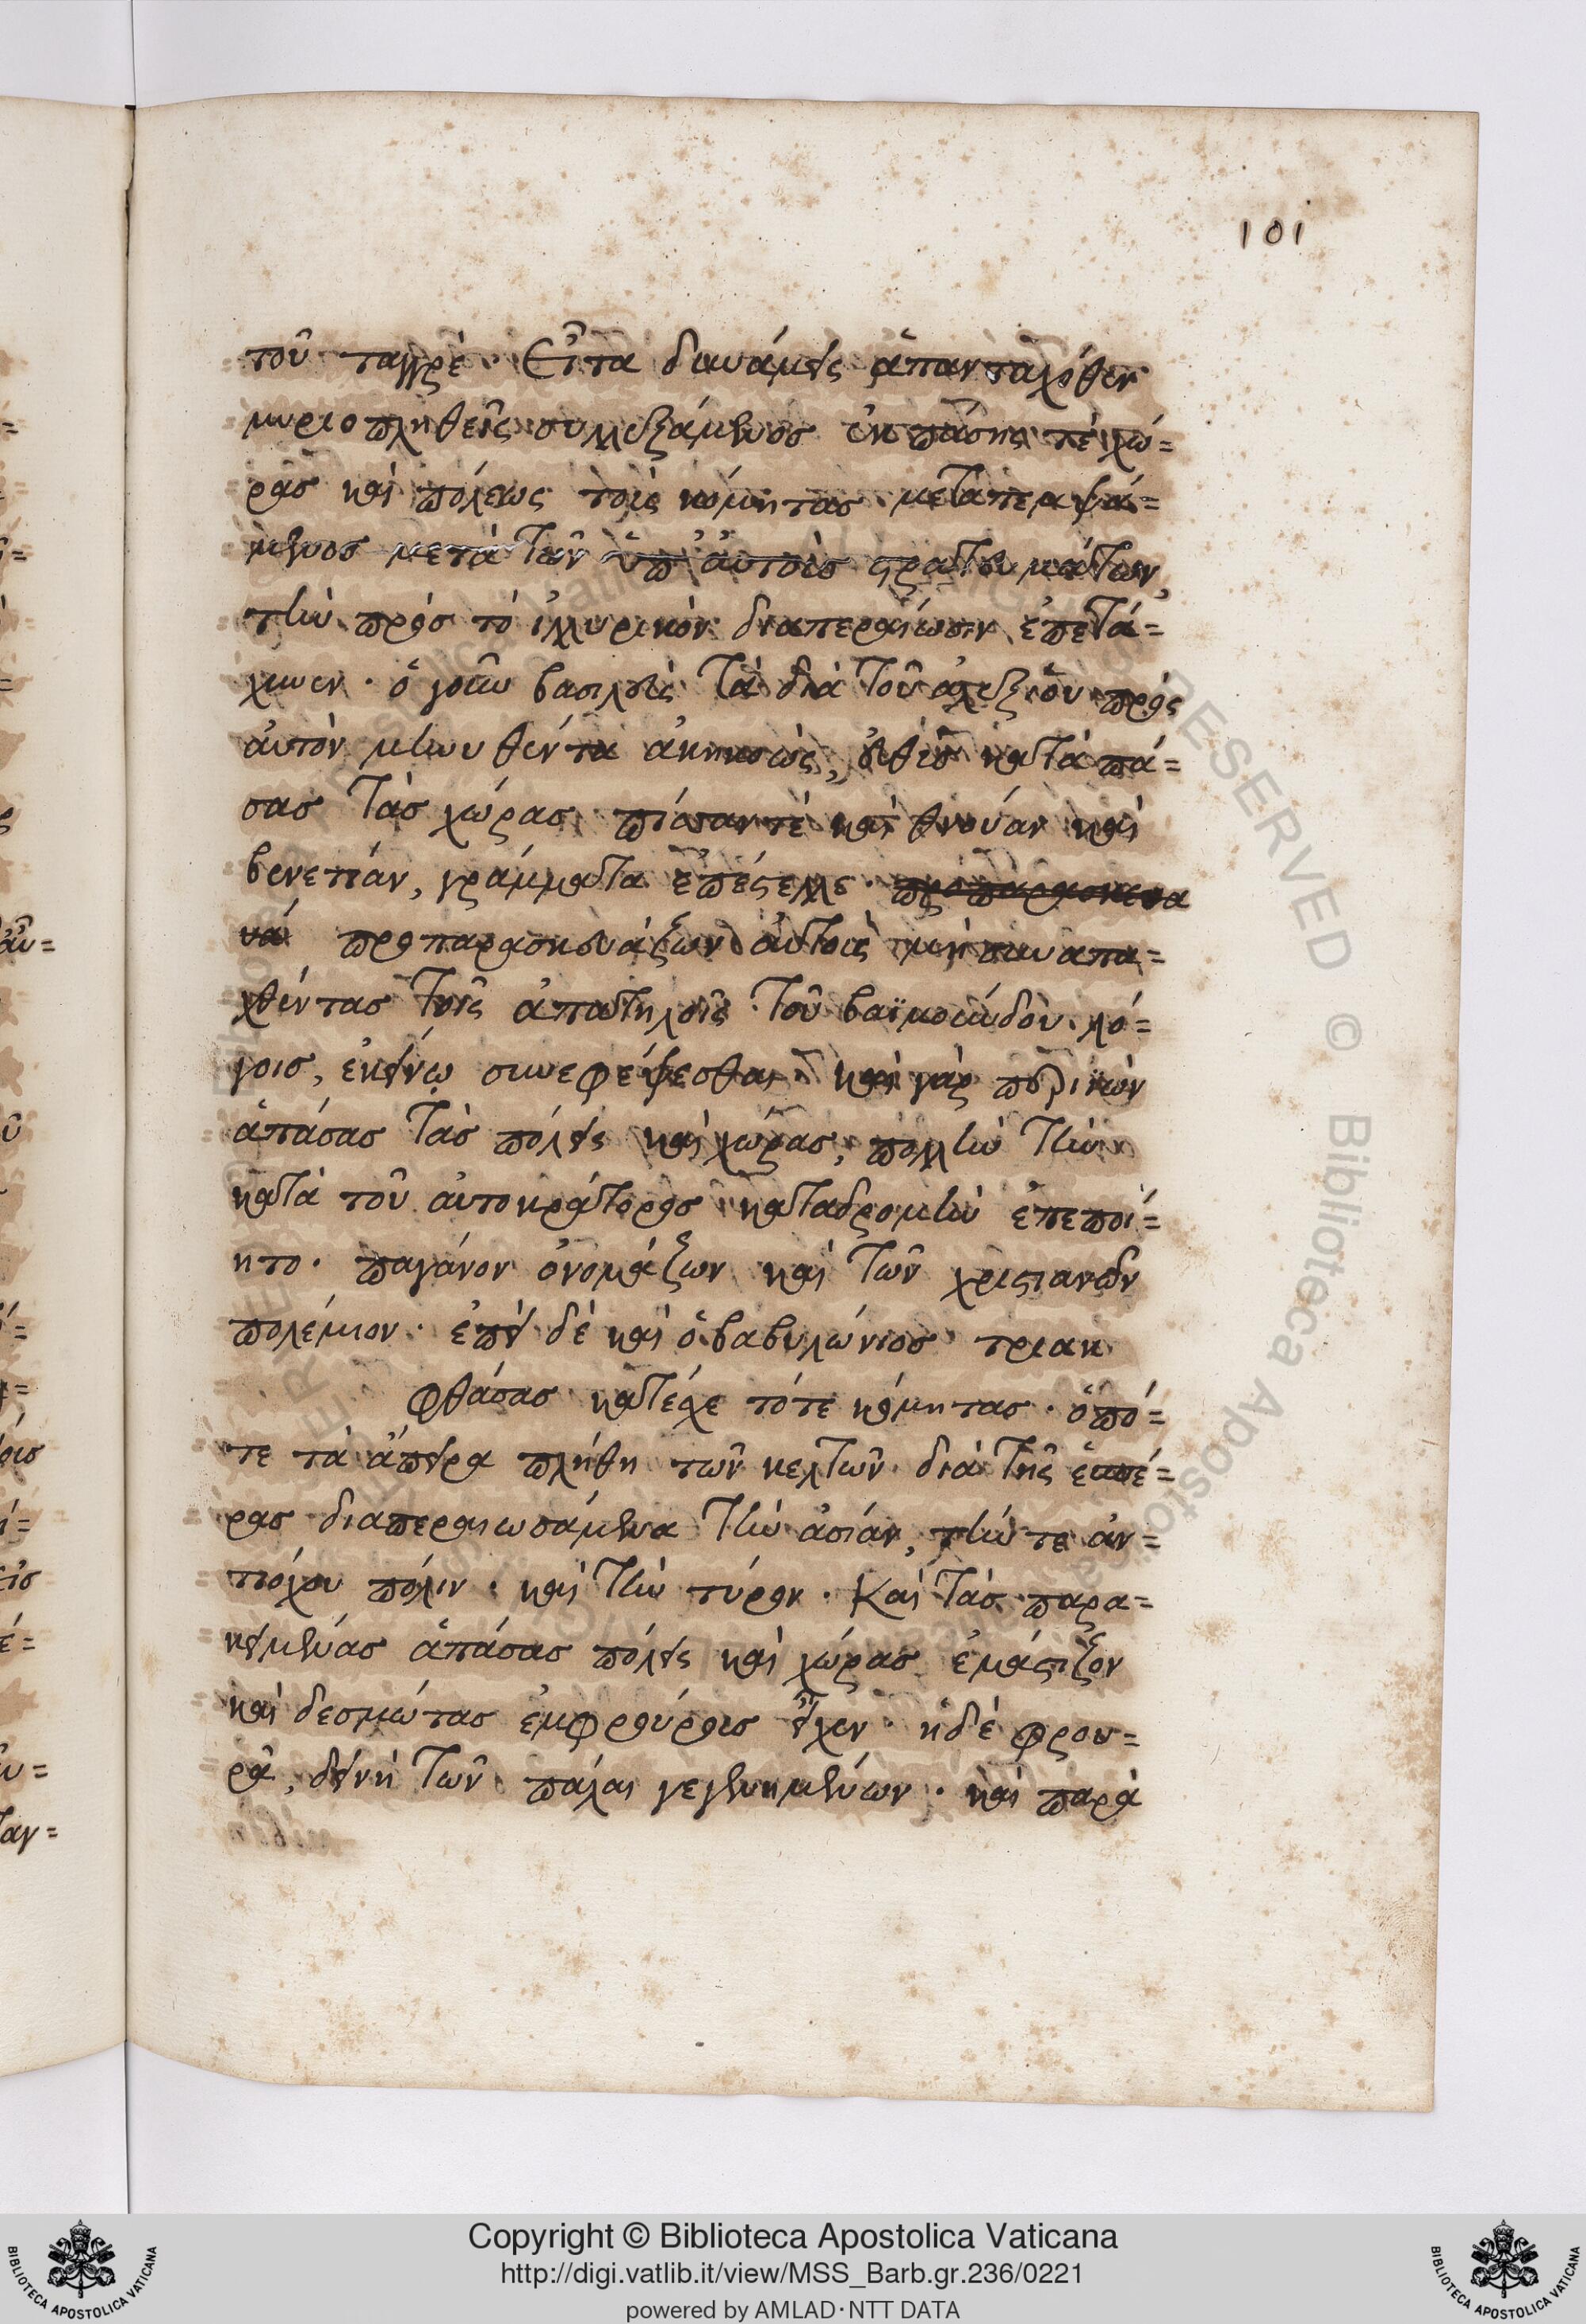 101
τοῦ ταγγρέ. Εἶτα δυνάμεις ἁπανταχόθεν
μυριοπληθεῖς συλλεξάμενος ἐκ πάσης τὲ χώ=
ρας καὶ πόλεως τοὺς κόμητας μεταπεμψά=
μενος μετὰ τῶν ὑπ' αὐτοὺς στρατευμάτων,
τὴν πρὸς τὸ ἰλλυρικὸν διαπεραίωσιν ἐπετά=
χυνεν. ὁ γοῦν βασιλεὺς τὰ διὰ τοῦ ἀλεξίου πρὸς
αὐτὸν μηνυθέντα ἀκηκοὼς, εὐθὺς κατὰ πά=
σας τὰς χώρας πίσσαν τὲ καὶ γενούαν καὶ
βενετίαν, γράμματα ἐπέστελλε.
προπαρασκευάζων αὐτοὺς μὴ συναπα=
χθέντας τοῖς ἀπατηλοῖς τοῦ βαϊμούνδου λό=
γοις, ἐκείνῳ συνεφέψεσθαι. καὶ γὰρ περιϊὼν
ἁπάσας τὰς πόλεις καὶ χώρας, πολλὴν τὴν
κατὰ τοῦ αὐτοκράτορος καταδρομὴν ἐπεποί=
ητο. παγάνον ὀνομάζων καὶ τῶν χριστιανῶν
πολέμιον. ἐπεὶ δὲ καὶ ὁ βαβυλώνιος τριακ
φθάσας κατέσχε τότε κόμητας. ὁπό=
τε τὰ ἄπειρα πλήθη τῶν κελτῶν διὰ τῆς ἑσπέ=
ρας διαπεραιωσάμενα τὴν ἀσίαν, τήν τε ἀν=
τιόχου πόλιν. καὶ τὴν τύρον. Καὶ τὰς παρα=
κειμένας ἁπάσας πόλεις καὶ χώρας ἐμάστιζον
καὶ δεσμώτας ἐμφρούρους εἶχεν. ἡ δὲ φρου=
ρὰ, δεινὴ τῶν πάλαι γεγενημένων. καὶ παρὰ
Copyright © Biblioteca Apostolica Vaticana
http://digi.vatlib.it/view/MSS_Barb.gr.236/0221
powered by AMLAD·NTT DATA
BIBLIOTECA APOSTOLICA VATICANA
BIBLIOTECA APOSTOLICA VATICANA